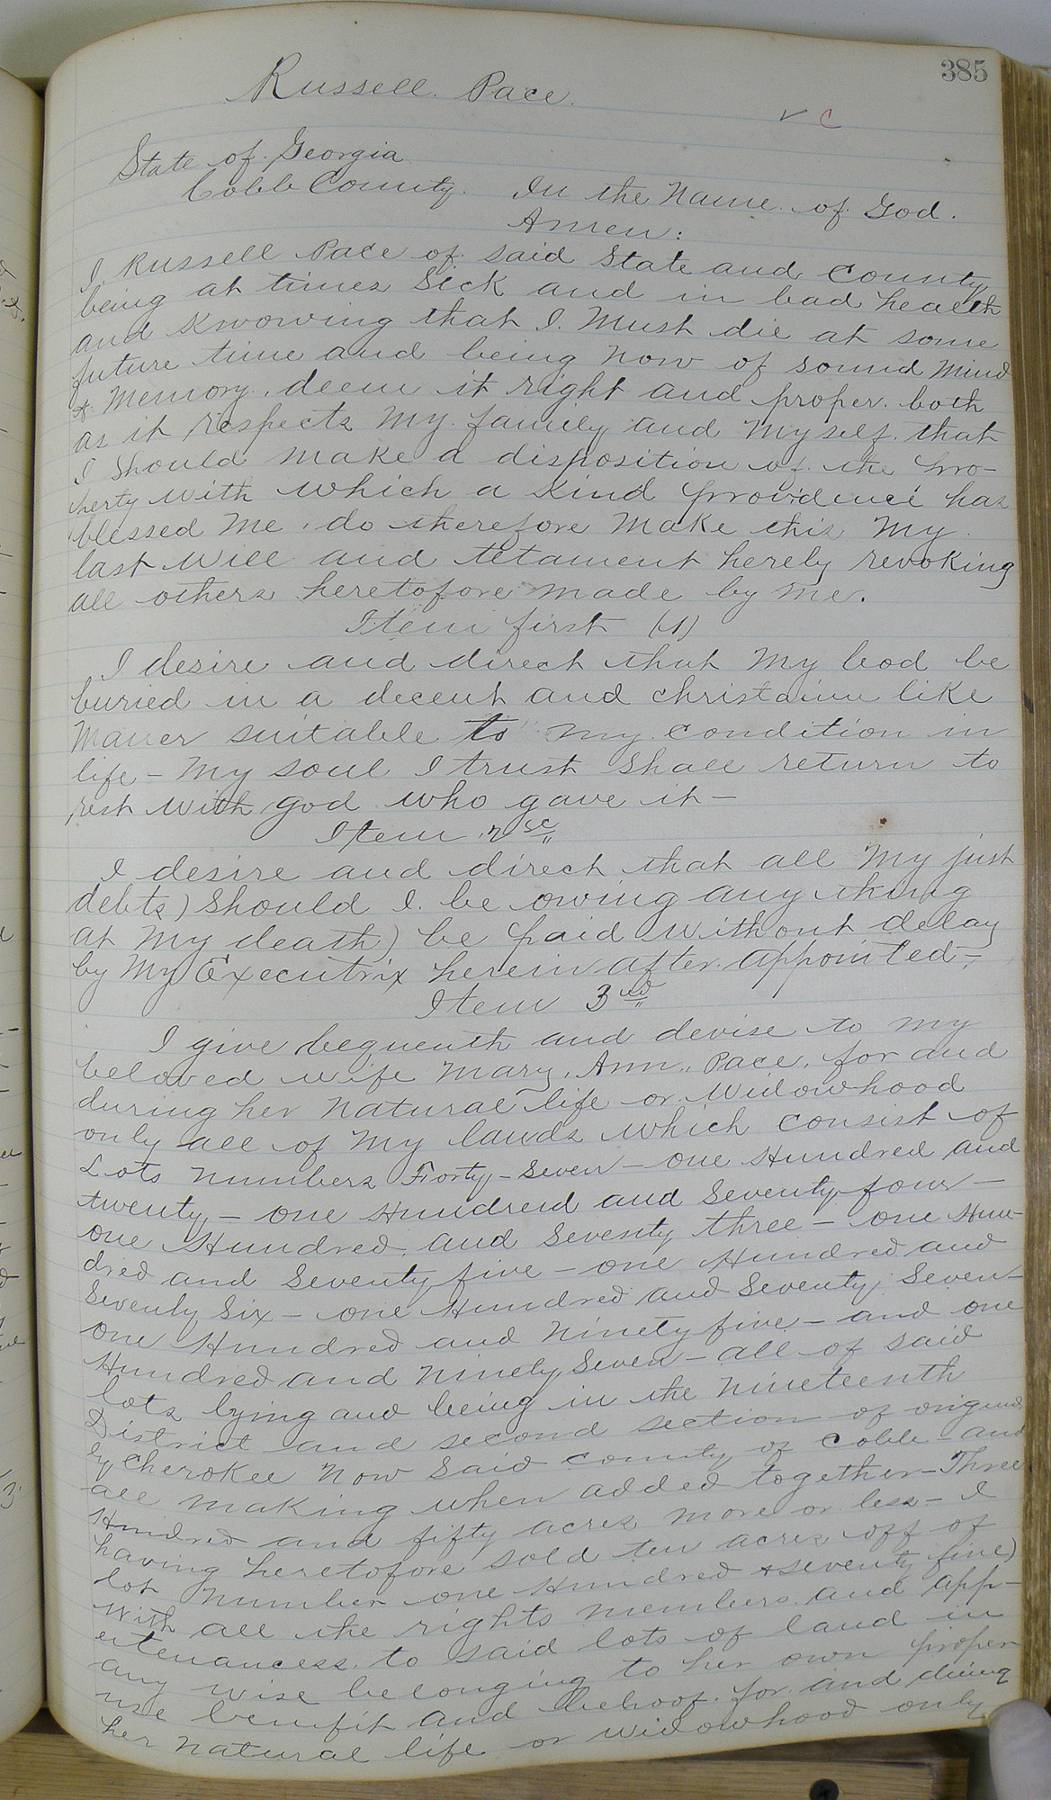 385
Russell Pace.
✓ C
State of Georgia
Cobb County. In the Name of God.
Amen:
I Russell Pace of said State and County
being at times Sick and in bad health
and Knowing that I Must die at some
future time and being now of sound Mind
& Memory. deem it right and proper both
as it respects My family and Myself that
I Should Make a disposition of the pro-
perty with which a Kind providence has
blessed Me. do therefore Make this My
last Will and tetament hereby revoking
all others heretofore made by Me.
Item first (1)
I desire and direct that My bod be
buried in a decent and christain like
Maner suitable to my condition in
life - My soul I trust Shall return to
rest with god who gave it -
Item 2
I desire and direct that all My just
debts) Should I be owing any thing
at My death) be paid without delay
by My Executrix herein after appointed -
Item 3rd
I give bequeath and devise to my
beloved wife Mary. Ann. Pace. for and
during her natural life or Widowhood
only all of My lands which consist of
Lots numbers Forty-Seven - one Hundred and
twenty - one Hundred and Seventy four -
one Hundred and Seventy three - one Hun-
dred and Seventy five - one Hundred and
Seventy Six - one Hundred and Seventy Seven -
one Hundred and Ninety five - and one
Hundred and Ninety Seven - all of said
lots lying and being in the Nineteenth
District and second section of original
ly Cherokee Now Said county of Cobb - and
all making when added together - Three
Hundred and fifty acres more or less - I
having heretofore sold ten acres off of
lot number one Hundred & seventy five)
With all the rights members and app-
ertenancess to said lots of land in
any wise belonging to her own proper
use benefit and behoof for and during
her natural life or widowhood only